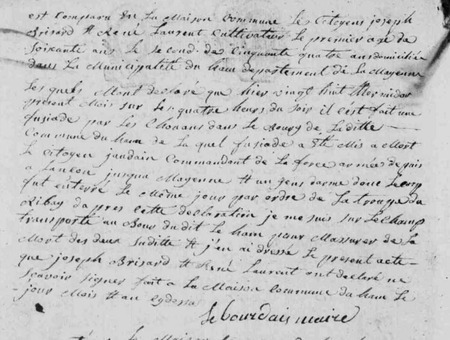 est comparu en La Maison Commune Le Citoyens joseph
Brisard & René Laurent Cultivateur Le premier agé de
soixante ans Le second de Cinquante quatre ans domicilié
dans La Municipalité du ham departement de La Mayenne
Lesquels Mont declaré que hier vingt huit thermidor
present Mois sur Les quatre heurs du soir il cest fait une
fusiade par Les Chouans dans Le Bourg de Laditte
Commune du ham de La quel fusiade a Eté Mis a Mort
Le Citoyen jundain Commandant de La force armée de puis
a Lancou jusqua Mayenne & un jendarme donc Le corp
fut enterré Le Même jours par ordre de La troupe du
Ribay dapres cette declaration je me suis sur Le champ
transporté au Bour dudit Le ham pour Massurer de La
Mort des deux Suditte & jen ai dressé Le present acte
que joseph Brisard & René Laurent ont declaré ne
scavoir signer fait a La Maison Commune du ham Le
jour Mois & an cydessu
Le bourdais maire